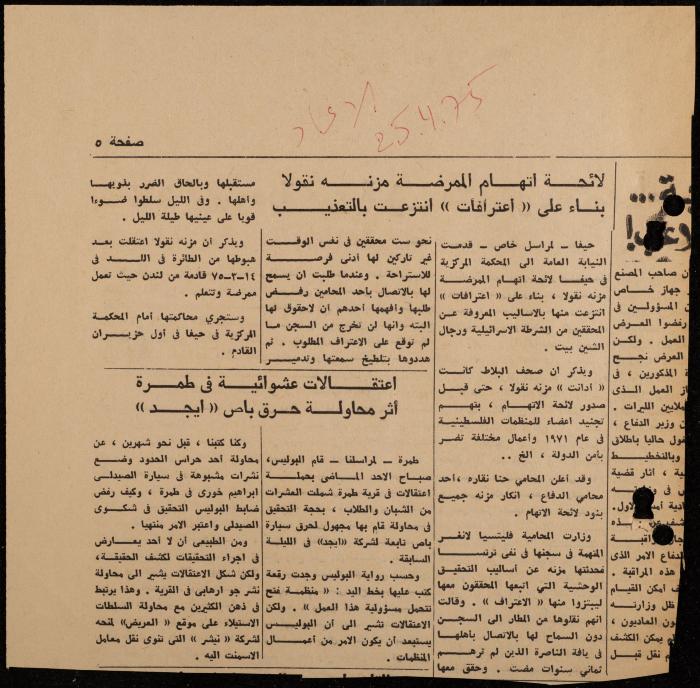 الاتحاد
25.4.75
صفحة ٥
لائحـــة اتهـــام الممرضــة مزنــه نقولا
بناء على « أعترافات » انتزعت بالتعذيب
حيفا – لمراسل خاص – قدمت
النيابة العامة الى المحكمة المركزية
في حيفا لائحة اتهام الممرضة
مزنه نقولا ، بناء على « اعترافات »
انتزعت منها بالاساليب المعروفة عن
المحققين من الشرطة الاسرائيلية ورجال
الشين بيت .
ويذكر ان صحف البلاط كانت
« أدانت » مزنه نقولا ، حتى قبل
صدور لائحة الاتهام ، بتهم
تجنيد اعضاء للمنظمات الفلسطينية
في عام ١٩٧١ وأعمال مختلفة تضر
بأمن الدولة ، الخ ..
وقد أعلن المحامي حنا نقاره ، أحد
محامي الدفاع ، انكار مزنه جميع
بنود لائحة الاتهام .
وزارت المحامية فليتسيا لانغر
المتهمة في سجنها في نفى ترتسا
فحدثتها مزنه عن أساليب التحقيق
الوحشية التي اتبعها المحققون معها
ليبتزوا منها « الاعتراف » . وقالت
انهم نقلوها من المطار الى السجن
دون السماح لها بالاتصال بأهلها
في يافة الناصرة الذين لم ترهم
ثماني سنوات مضت . وحقق معها
نحو ست محققين في نفس الوقت
غير تاركين لها أدنى فرصة
للاستراحة . وعندما طلبت ان يسمح
لها بالاتصال بأحد المحامين رفض
طلبها وافهمها أحدهم ان لاحقوق لها
البته وانها لن تخرج من السجن ما
لم توقع على الاعتراف المطلوب . ثم
هددوها بتلطيخ سمعتها وتدمير
مستقبلها وبالحاق الضرر بذويها
وأهلها . وفي الليل سلطوا ضوءا
قويا على عينيها طيلة الليل .
ويذكر ان مزنه نقولا اعتقلت بعد
هبوطها من الطائرة في اللد في
١٤-٣-٧٥ قادمة من لندن حيث تعمل
ممرضة وتتعلم .
وستجري محاكمتها أمام المحكمة
المركزية في حيفا في أول حزيران
القادم .
اعتقــالات عشوائيــة في طمرة
أثر محاولــة حرق باص « ايجد »
طمرة – لمراسلنا – قام البوليس،
صباح الاحد الماضي بحملة
اعتقالات في قرية طمرة شملت العشرات
من الشبان والطلاب ، بحجة التحقيق
في محاولة قام بها مجهول لحرق سيارة
باص تابعة لشركة «ايجد» في الليلة
السابقة .
وحسب رواية البوليس وجدت رقعة
كتب عليها بخط اليد : « منظمة فتح
تتحمل مسؤولية هذا العمل » . ولكن
الاعتقالات تشير الى أن البوليس
يستبعد أن يكون الامر من أعمال
المنظمات .
وكنا كتبنا ، قبل نحو شهرين ، عن
محاولة أحد حراس الحدود وضع
نشرات مشبوهة في سيارة الصيدلي
ابراهيم خوري في طمرة ، وكيف رفض
ضابط البوليس التحقيق في شكوى
الصيدلي واعتبر الامر منتهيا .
ومن الطبيعي أن لا أحد يعارض
في اجراء التحقيقات لكشف الحقيقة،
ولكن شكل الاعتقالات يشير الى محاولة
نشر جو ارهابي في القرية . وهذا يرتبط
في ذهن الكثيرين مع محاولة السلطات
الاستيلاء على موقع « العريض» لمنحه
لشركة « نيشر » التي تنوي نقل معامل
الاسمنت اليه .
ان صاحب المصنع
جهاز خاص
المسؤولين في
رفضوا العرض
العمل . ولكن
العرض نجح
المذكورين ، في
العمل الذي
ملايين الليرات .
وزير الدفاع ،
حاليا باطلاق
وبالتخطيط
، أثار قضية
الامر الذي
هذه المراقبة .
أمكن القيام
ظل وزارته
العاديون ،
يمكن الكشف
نقل قبل